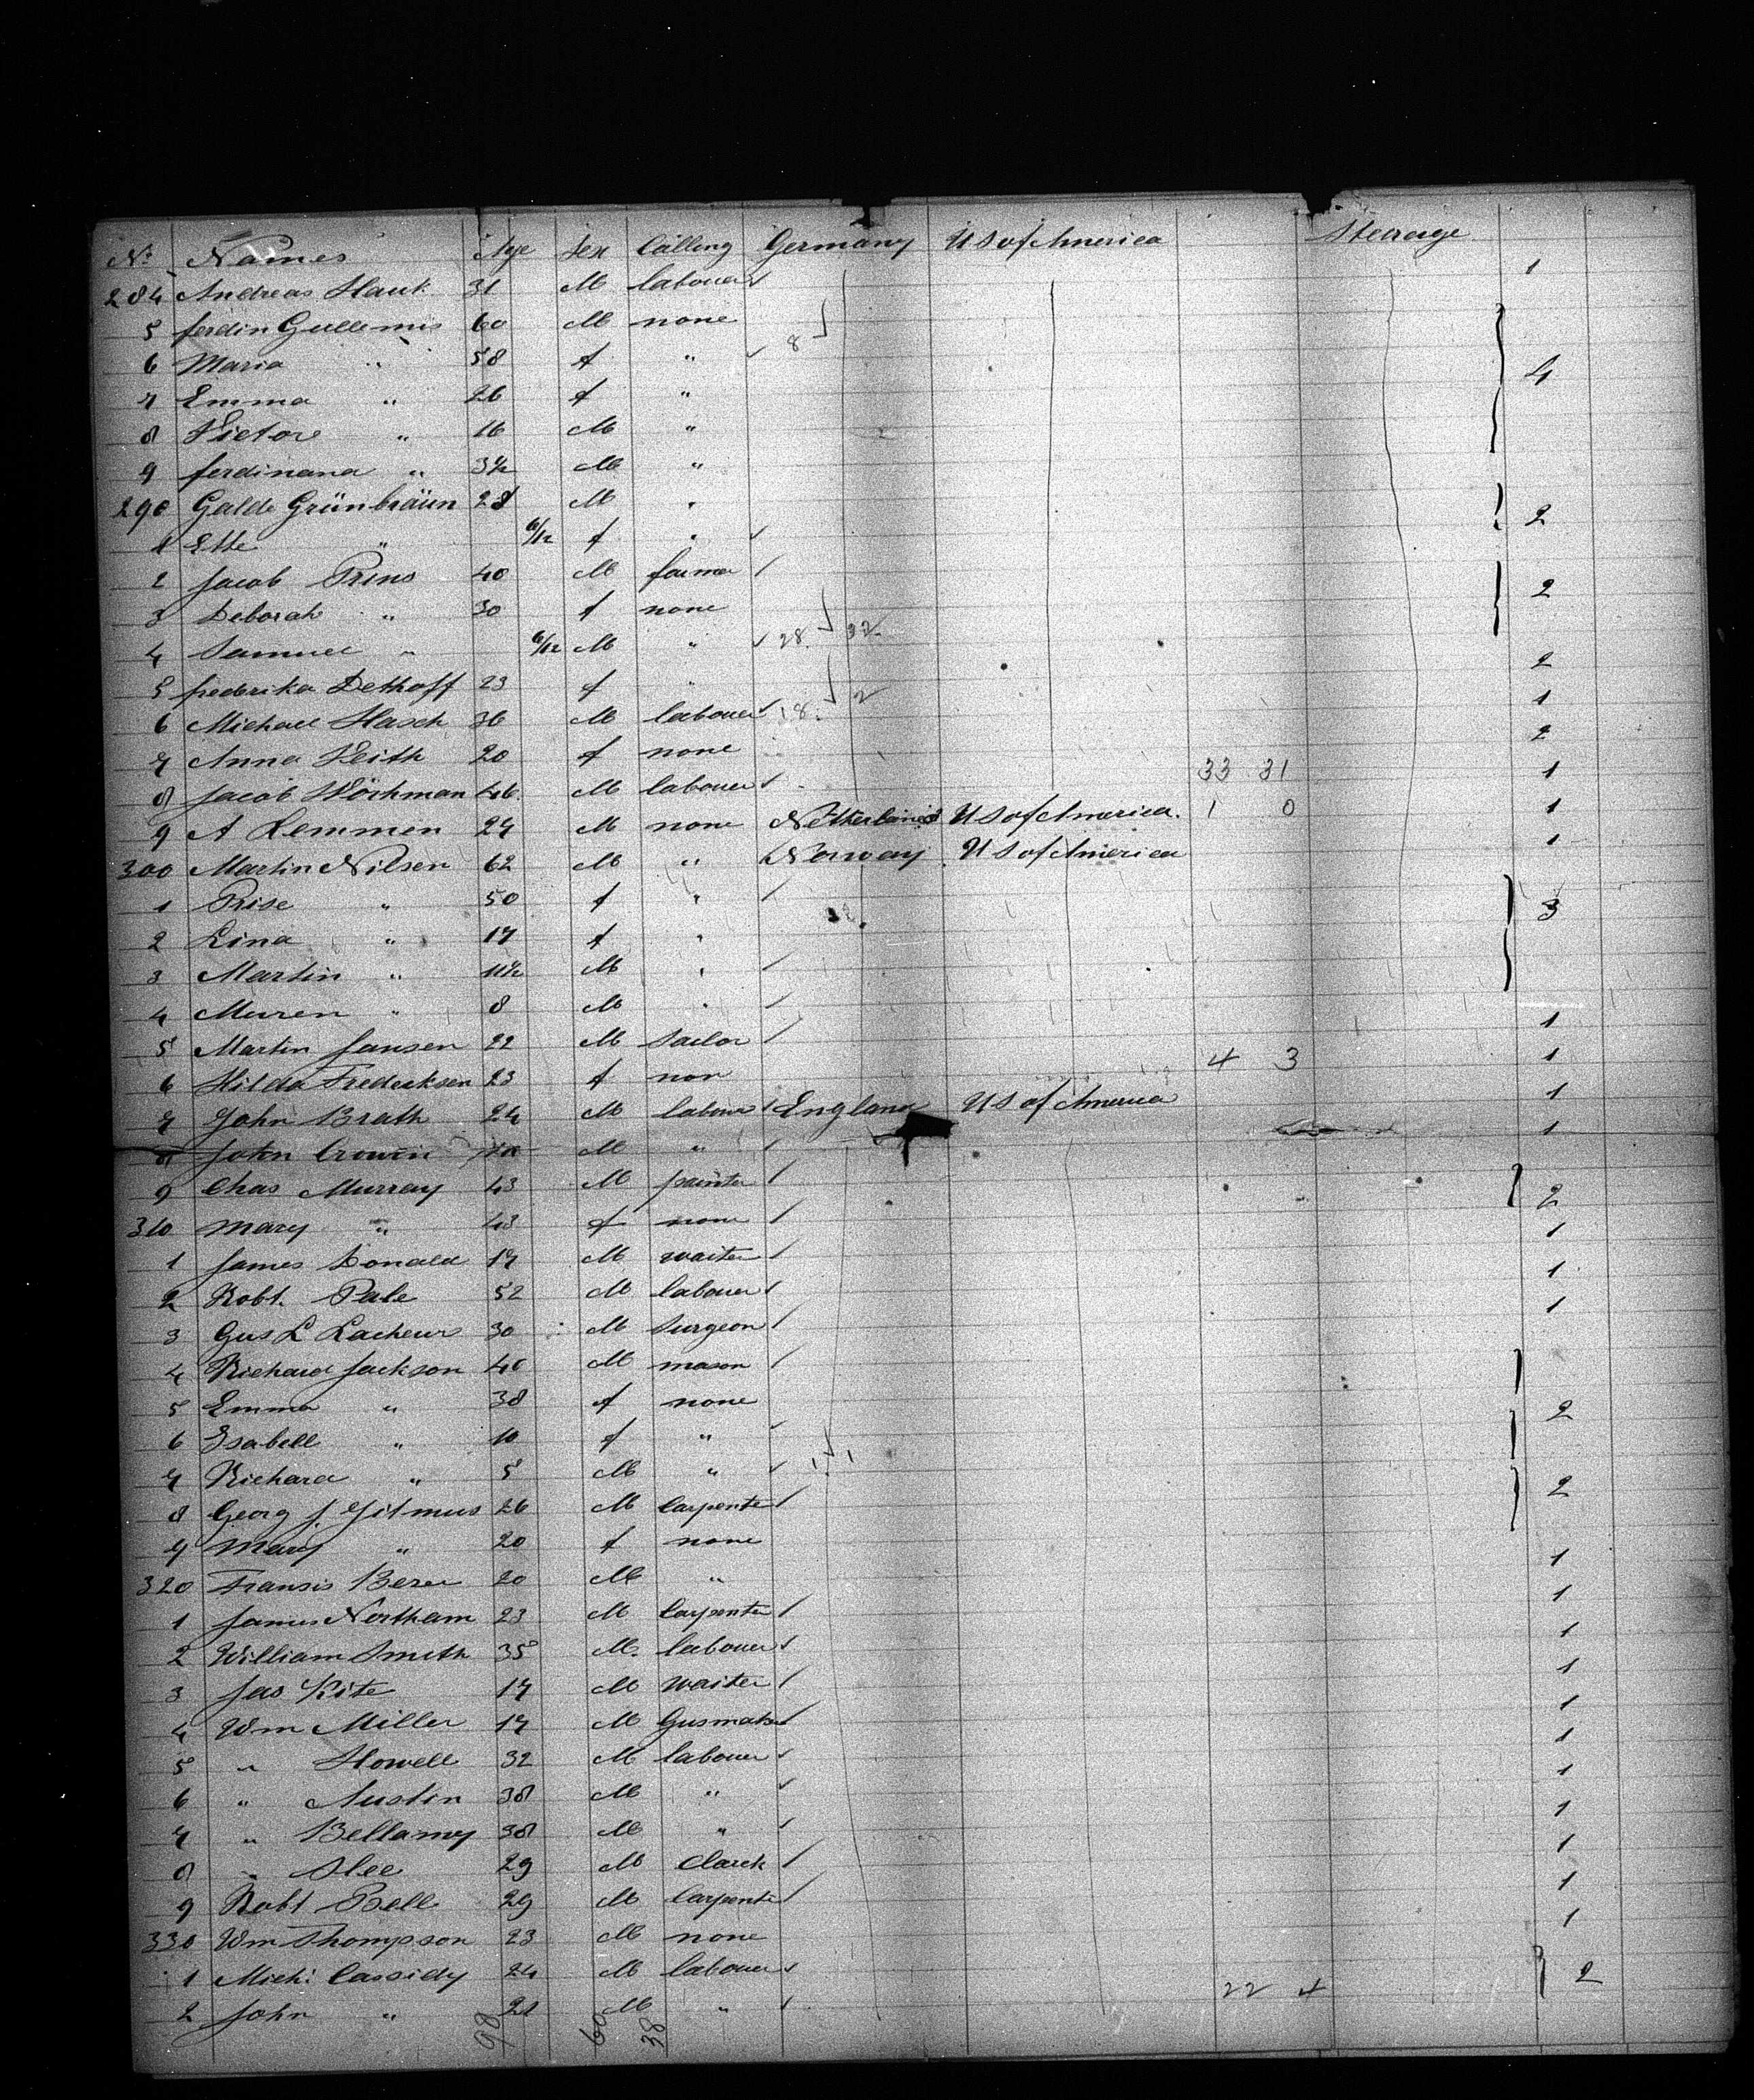 No. Names Age Sex Calling Germany US of America Steerage
284 Andreas Hauk 31 M labouer 1
5 ferdin Gullemis 60 M none
6 Maria " 58 f " 8
7 Emma " 26 f " 4
8 Victor " 16 M "
9 ferdinand " 3½ M "
290 Galde Grünbräun 28 M "
1 Ette " 6/12 f " 2
2 Jacob Prins 40 M farmer
3 Deborah " 30 f none 2
4 Samuel " 6/12 M " 28 32
5 frederika Dethoff 23 f " 2 2
6 Michael Hasch 36 M labouer 18 1
7 Anna Veith 20 f none 2
8 Jacob Wöhrman 46 M labouer 33 31 1
9 A Lemmen 27 M none Netherlands US of America. 1 0 1
300 Martin Nilsen 62 M " Norway US of America 1
1 Prise " 50 f "
2 Lina " 17 f " 3
3 Martin " 11½ M "
4 Muren " 8 M "
5 Martin Jansen 22 M Sailor 1
6 Hilda Fredericksen 23 f non 4 3 1
7 John Brath 24 M labouer England US of America 1
8 John Crowin M " 1
9 Chas Murray 43 M painter
310 Mary " 43 f none 2
1 James Donald 17 M waiter 1
2 Robt. Pale 52 M labouer 1
3 Gus L Lacheur 30 M Surgeon 1
4 Richard Jackson 40 M mason
5 Emma " 38 f none
6 Isabell " 10 f " 2
7 Richard " 5 M " 1 1
8 Georg J. Gitmus 26 M Carpenter 2
9 Mary " 20 f none
320 Fransis Berer 20 M " 1
1 James Northam 23 M Carpenter 1
2 William Smith 35 M. labouer 1
3 Jas Kite 17 M waiter 1
4 Wm Miller 17 M Gusmaker 1
5 " Howell 32 M labouer 1
6 " Austin 38 M " 1
7 " Bellamy 38 M " 1
8 " Slee 29 M Clarck 1
9 Robt Bell 29 M Carpenter 1
330 Wm Thompson 23 M none 1
1 Mich: Cassidy 24 M labouer
2 John " 21 M " 22 4 2
98 60 38